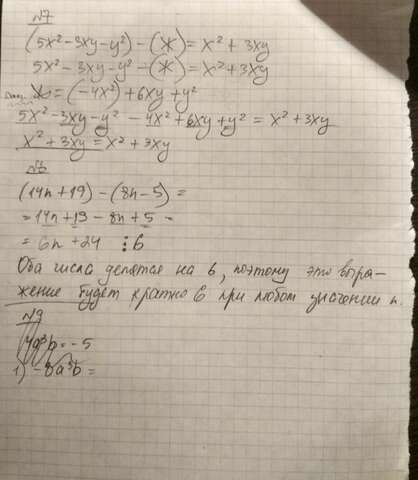 №7
(5x²-3xy-y²)-(Ж)=x²+3xy
5x²-3xy-y²-(Ж)=x²+3xy
Ж=(-4x²)+6xy+y²
5x²-3xy-y²-4x²+6xy+y²=x²+3xy
x²+3xy=x²+3xy
(14n+19)-(8n-5)=
=14n+19-8n+5=
=6n+24 ⋮6
Оба числа делятся на 6, поэтому это выра-
жение будет кратно 6 при любом значении n.
№9
4a³b=-5
1) -8a³b=